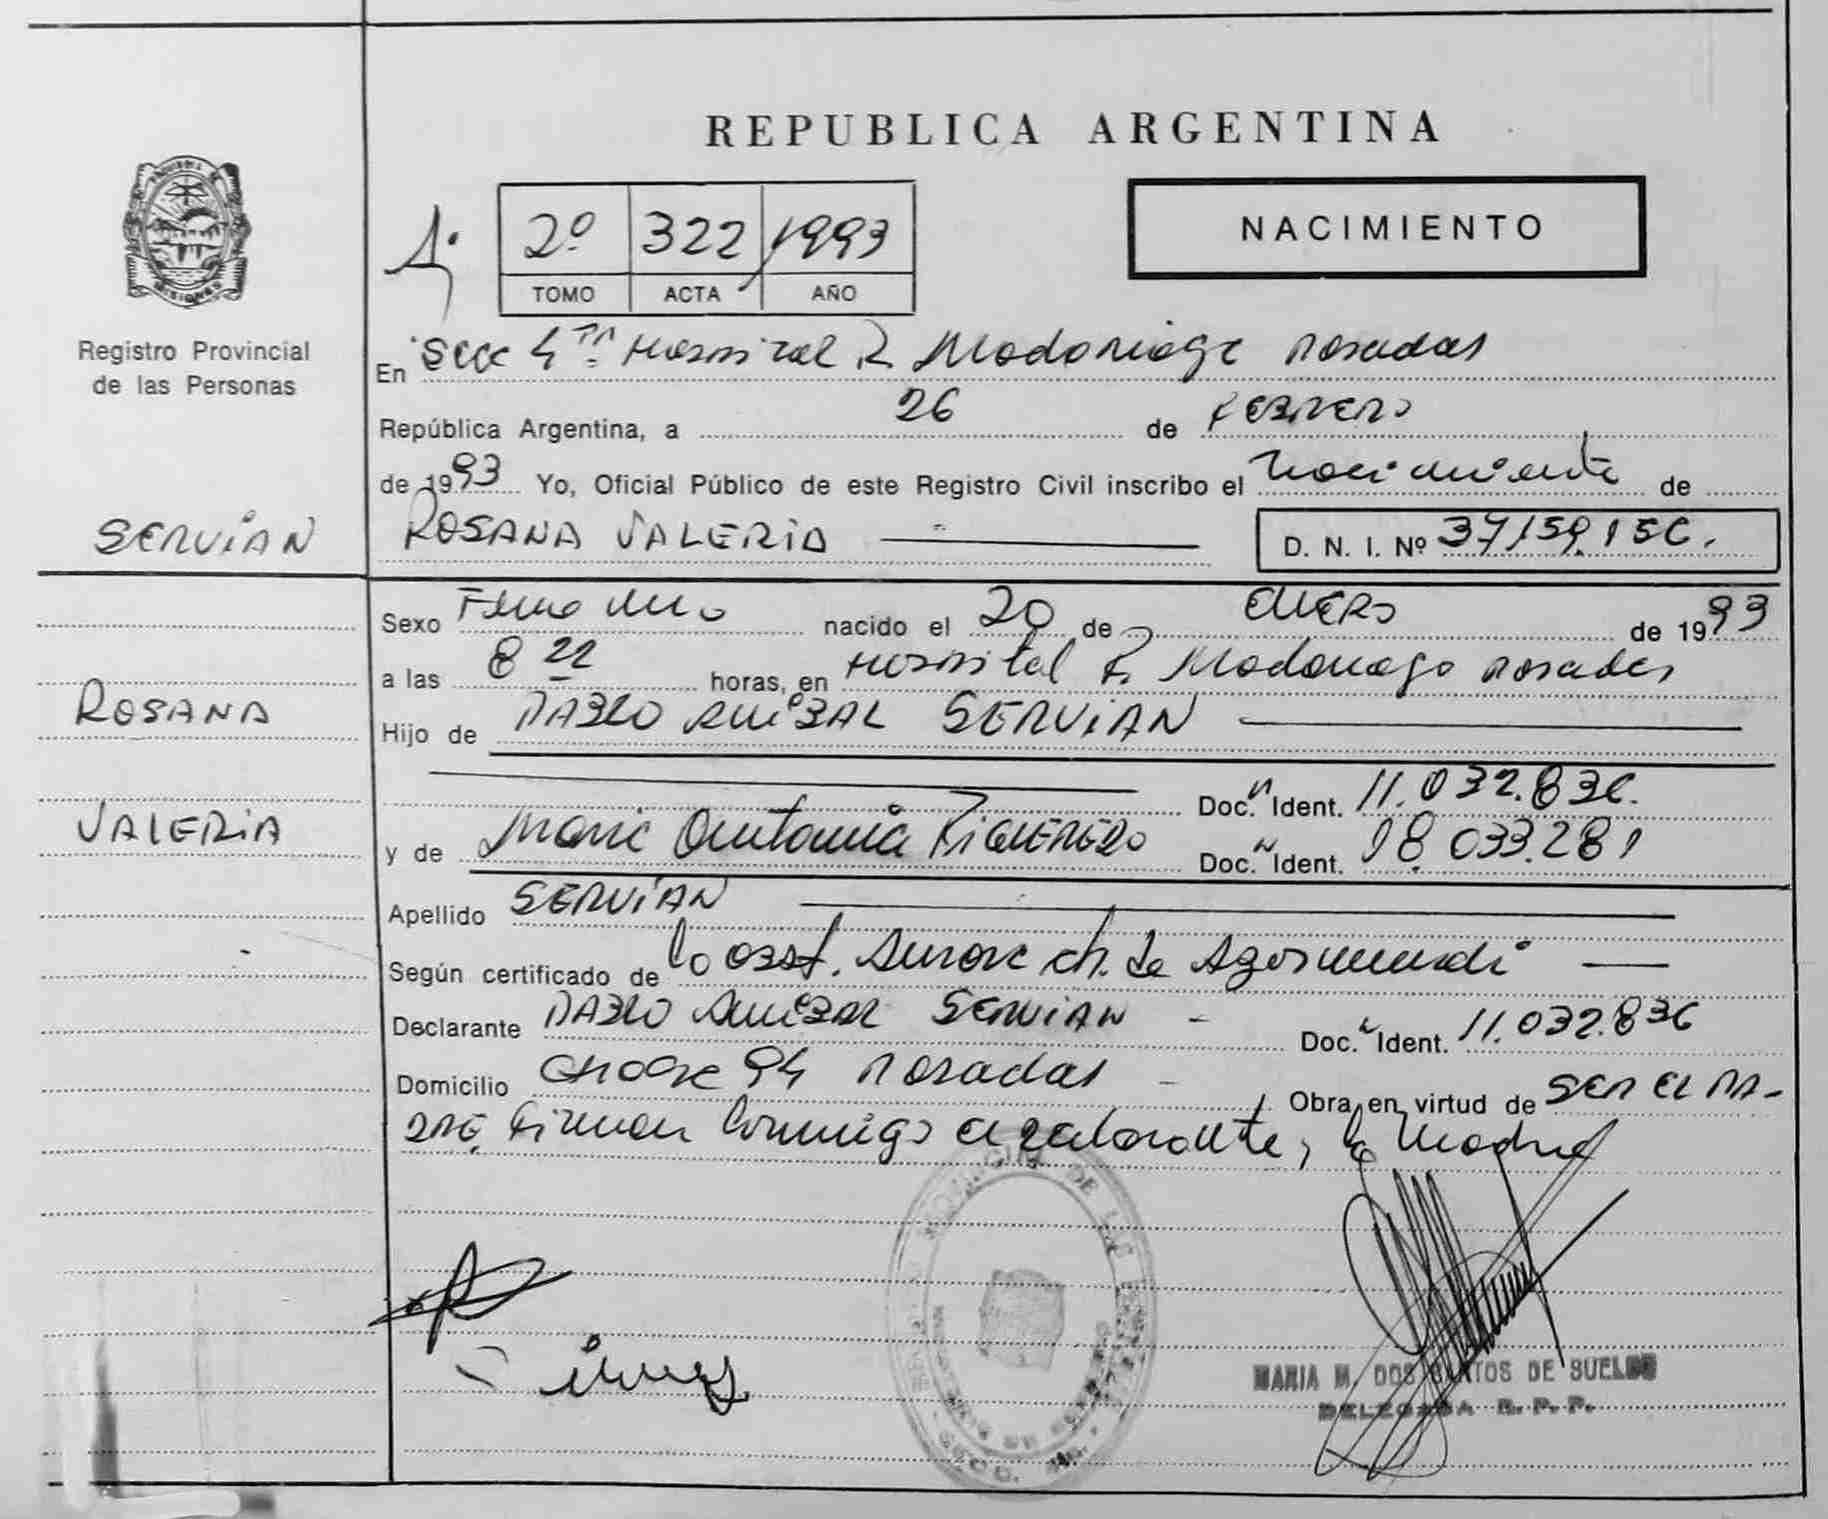 REPUBLICA ARGENTINA
NACIMIENTO
2º 322 1993
TOMO ACTA AÑO
MISIONES
Registro Provincial
de las Personas
En Secc 4ta Hospital R. Madariaga Posadas
República Argentina, a 26 de FEBRERO
de 1993 Yo, Oficial Público de este Registro Civil inscribo el nacimiento de
SERVIAN
ROSANA VALERIA D. N. I. Nº 37.159.156.
Sexo Femenino nacido el 20 de ENERO de 1993
a las 8 22 horas, en Hospital R. Madariaga Posadas
ROSANA
Hijo de PABLO ANIBAL SERVIAN
Doc. Ident. 11.032.836.
VALERIA
y de Maria Antonia FIGUEREDO Doc. Ident. 18.033.281
Apellido SERVIAN
Según certificado de la obst. Aurora Ch. de
Declarante PABLO ANIBAL SERVIAN - Doc. Ident. 11.032.836
Domicilio 94 Posadas - Obra en virtud de SER EL PA-
DRE, Firman conmigo el declarante, la Madre
MARIA M. DOS SANTOS DE SUELDO
DELEGADA R. P. P.